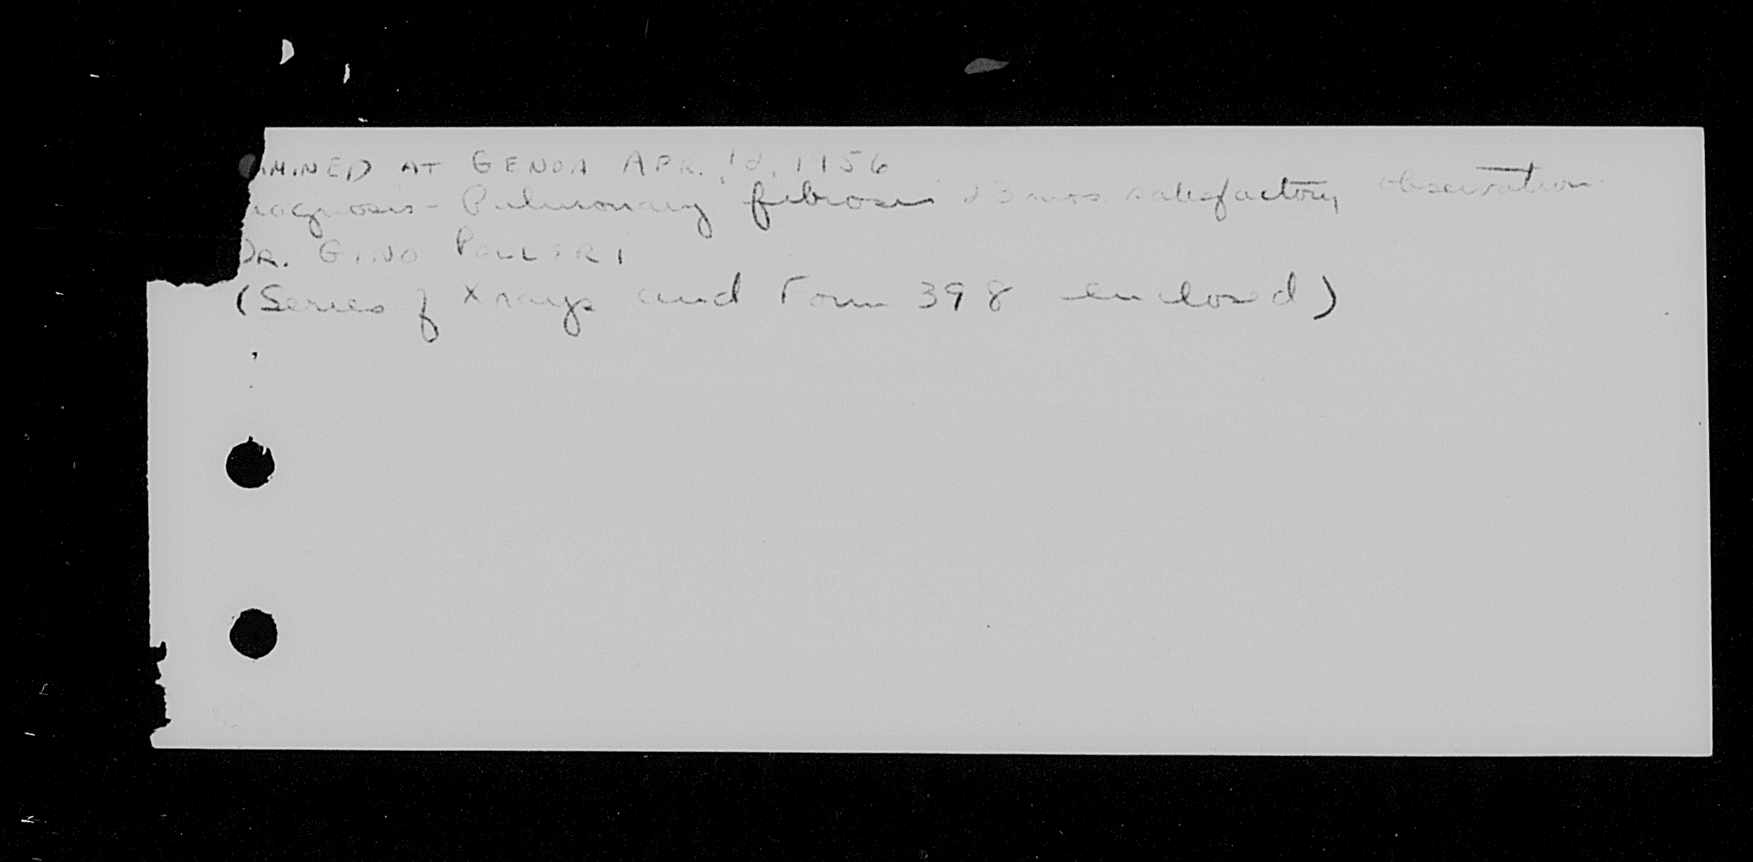 AMINED AT GENOA APR. 12, 1956
iagnosis - Pulmonary fibrosis 23 mos satisfactory observation
DR. GINO
(Series of X rays and Form 398 enclosed)